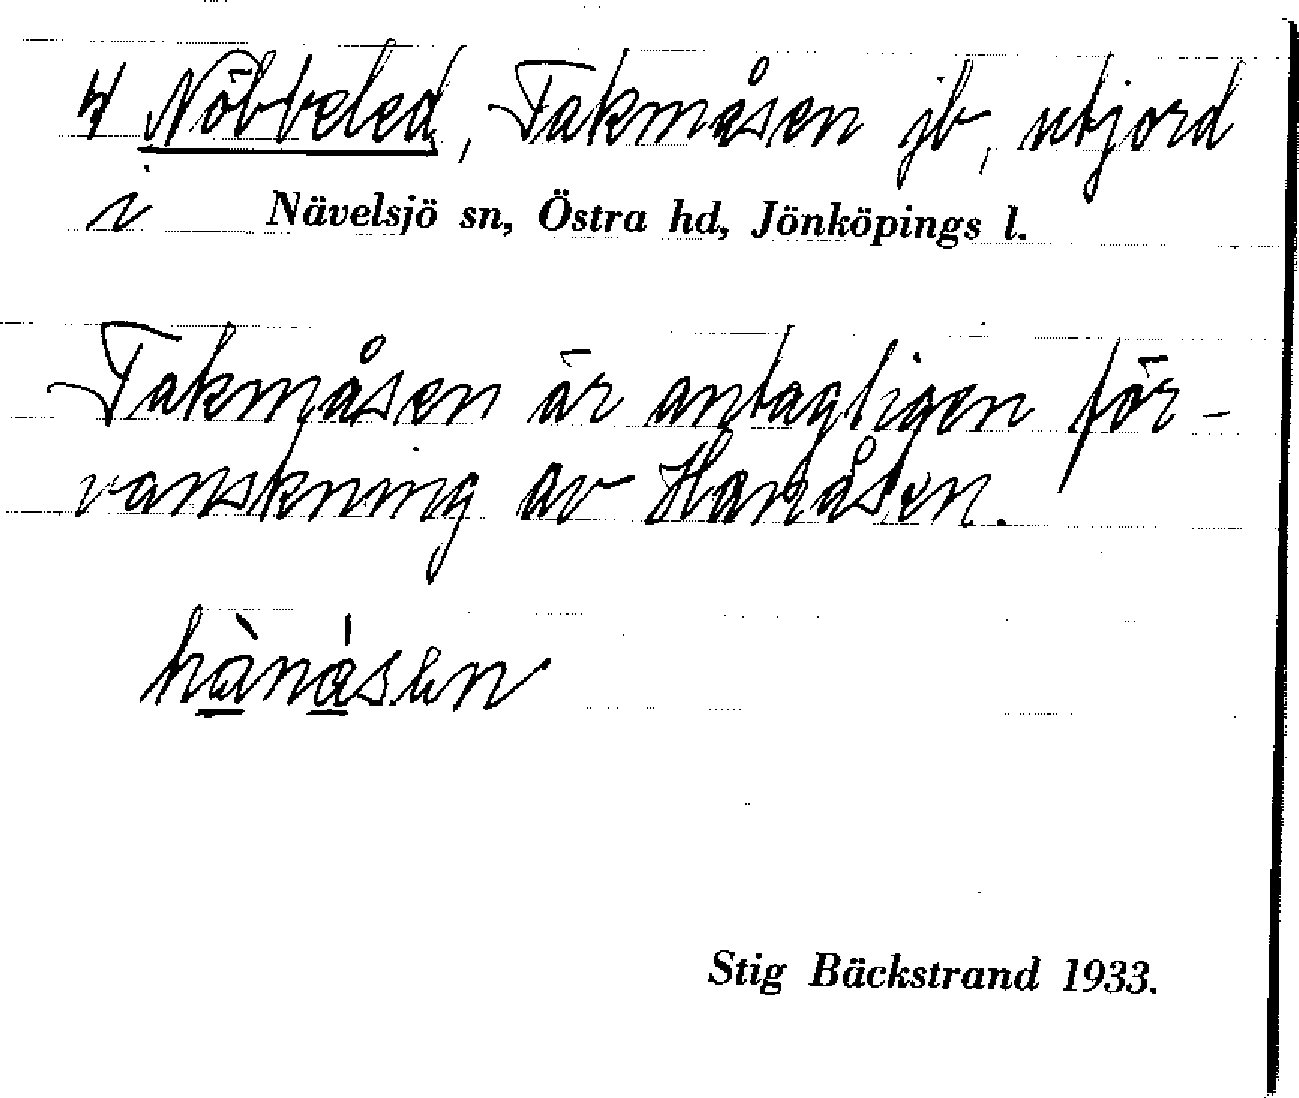 4 Nöbbeled, Takmåsen jb, utjord
i Nävelsjö sn, Östra hd, Jönköpings l.
Takmåsen är antagligen för-
vanskning av Hanåsen.
hànásen
Stig Bäckstrand 1933.